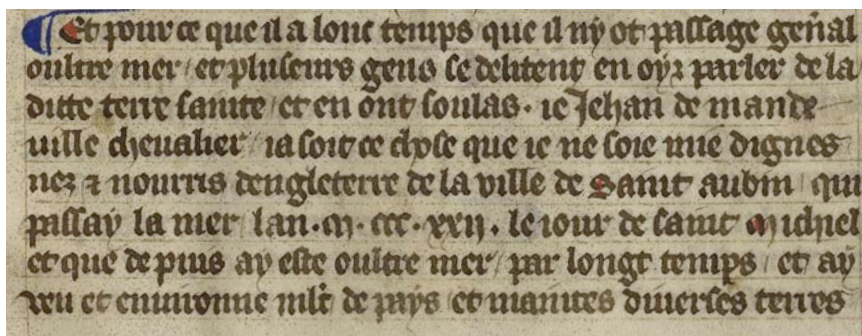 Et pour ce que il a lonc temps que il ny ot passage gen̄al
oultre mer / et pluseurs gens se delitent en oyr parler de la
ditte terre sainte / et en ont soulas · ie Jehan de mande
uille cheualier / ia soit ce chose que ie ne soie mie dignes
nez ⁊ nourris dengleterre de la ville de Saint aubin / qui
passay la mer / lan · M · ccc · xxij · le iour de saint Michiel
et que depuis ay este oultre mer / par longt temps / et ay
veu et enuironne mlt̄ de pays / et maintes diuerses terres